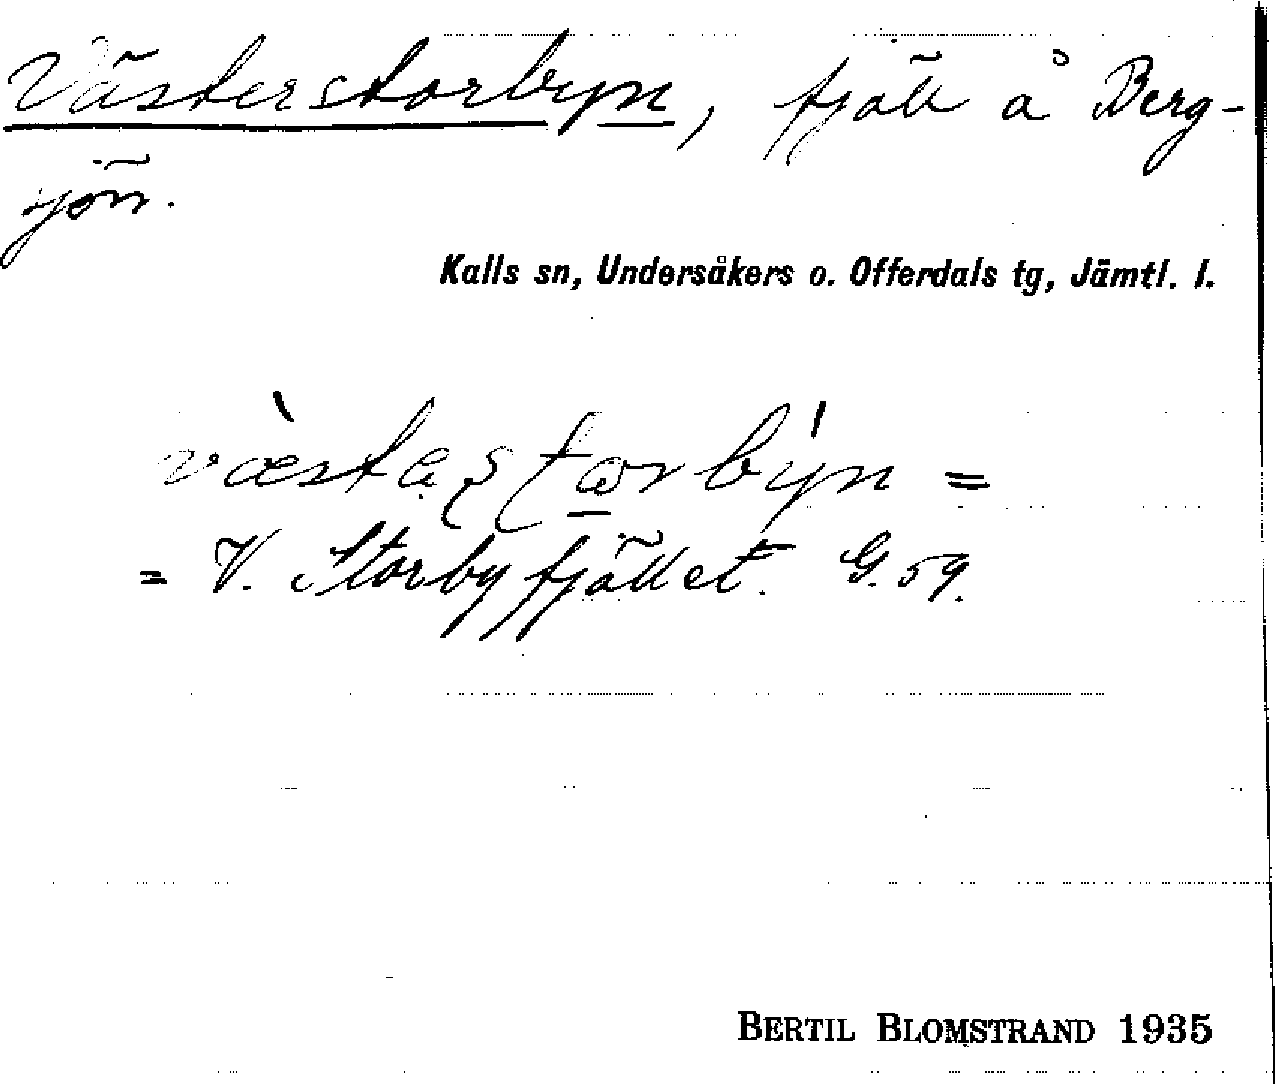 Västerstorbyn, fjäll å Berg-
sjön.
Kalls sn, Undersåkers o. Offerdals tg, Jämtl. l.
=
= V. Storbyfjället. G. 59.
BERTIL BLOMSTRAND 1935